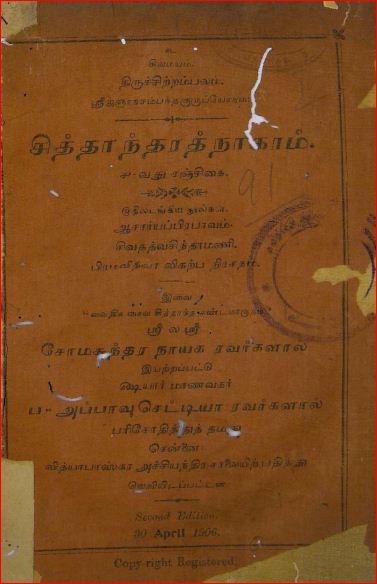 உ
சிவமயம்.
திருச்சிற்றம்பலம்.
ஸ்ரீ
சித்தாந்தரத்நாகரம்.
வது ரஞ்சிகை.
91
இதிலடங்கிய நூல்கள்
ஆசார்யப்பிரபாவம்.
சிவதத்வசிந்தாமணி.
பிரமவித்யா விகற்ப நிரசநம்.
இவை
வைதிக சைவ சித்தாந்த சண்டமாருதம்
ஸ்ரீ ல ஸ்ரீ
சோமசுந்தர நாயக ரவர்களால்
இயற்றப்பட்டு
ஷையார் மாணவகர்
ப அப்பாவுசெட்டியா ரவர்களால்
பரிசோதித்துத் தமது
சென்னை
வித்யாபாஸ்கர அச்சியந்திரசாலையிற்பதிப்பித்து
வெளியிடப்பட்டன
Second Edition.
30 April 1906.
Copy-right Registered.